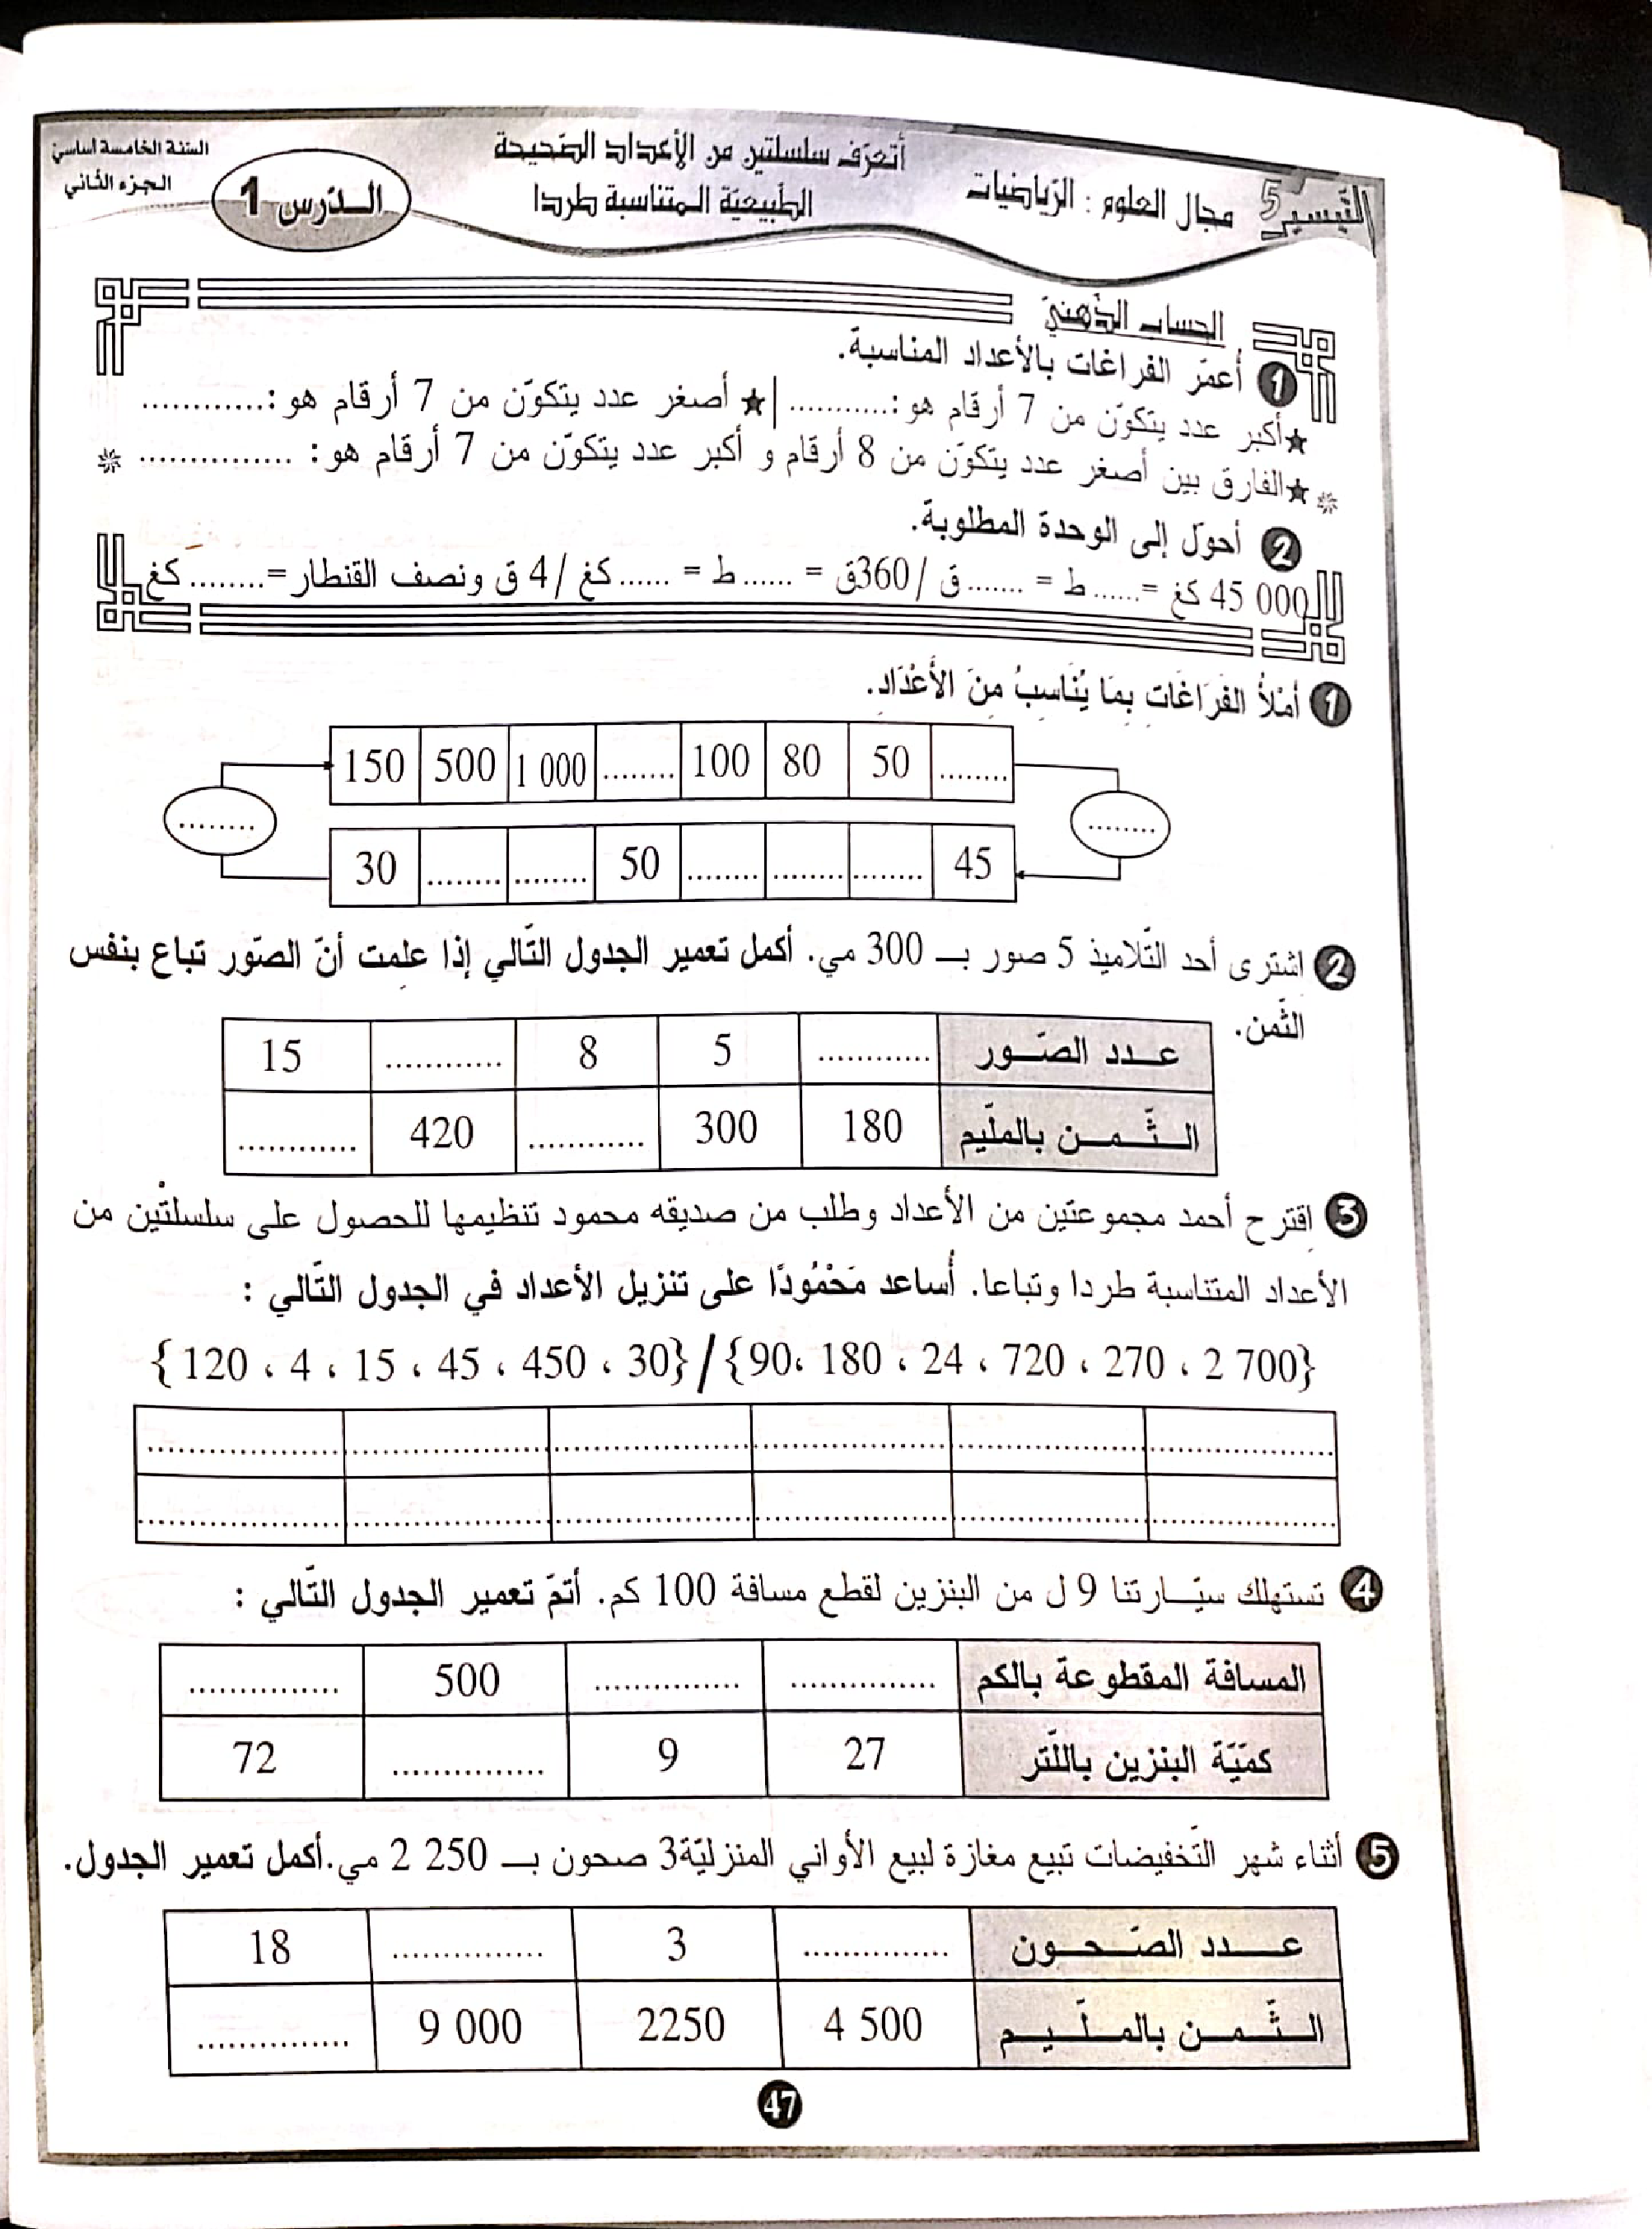 التيسير 5
مجال العلوم : الرّياضيات
أتعرّف سلسلتين من الأعداد الصّحيحة
الطّبيعيّة المتناسبة طردا
الدّرس 1
السّنة الخامسة أساسي
الجزء الثّاني
الحساب الذّهنيّ
1 أعمّر الفراغات بالأعداد المناسبة.
★أكبر عدد يتكوّن من 7 أرقام هو:............|★ أصغر عدد يتكوّن من 7 أرقام هو:.............
★الفارق بين أصغر عدد يتكوّن من 8 أرقام و أكبر عدد يتكوّن من 7 أرقام هو: ................
2 أحوّل إلى الوحدة المطلوبة.
45 000 كغ =......ط = ....... ق /360ق = ......ط = ......كغ /4 ق ونصف القنطار =........كغ
1 أَمْلَأُ الفَرَاغَاتِ بِمَا يُنَاسِبُ مِنَ الأَعْدَادِ.
150 500 1 000 ........ 100 80 50 ........
........ ........
30 ........ ........ 50 ........ ........ ........ 45
2 اِشترى أحد التّلاميذ 5 صور بـ 300 مي. أكمل تعمير الجدول التّالي إذا علِمت أنّ الصّور تباع بنفس
الثّمن.
عـدد الصّـور ............ 5 8 ............ 15
الـثّـمـن بالملّيم 180 300 ............ 420 ............
3 اِقترح أحمد مجموعتين من الأعداد وطلب من صديقه محمود تنظيمها للحصول على سلسلتْين من
الأعداد المتناسبة طردا وتباعا. أُساعد مَحْمُودًا على تنزيل الأعداد في الجدول التّالي :
{120 ، 4 ، 15 ، 45 ، 450 ، 30} / {90، 180 ، 24 ، 720 ، 270 ، 2 700}
4 تستهلك سيّـارتنا 9 ل من البنزين لقطع مسافة 100 كم. أتمّ تعمير الجدول التّالي :
المسافة المقطوعة بالكم ............... ............... 500 ...............
كمّيّة البنزين باللّتر 27 9 ............... 72
5 أثناء شهر التّخفيضات تبيع مغازة لبيع الأواني المنزليّة3 صحون بـ 250 2 مي.أكمل تعمير الجدول.
عــدد الصّـحـون ............... 3 ............... 18
الـثّـمـن بالمـلّـيـم 4 500 2250 9 000 ...............
47